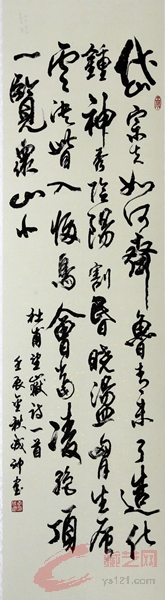 岱宗夫如何齊魯青未了造化
鍾神秀陰陽割昏曉盪胸生層
雲決眥入歸鳥會當凌絕頂
一覽眾山小
杜甫望嶽詩一首
壬辰秋書
ya121.com